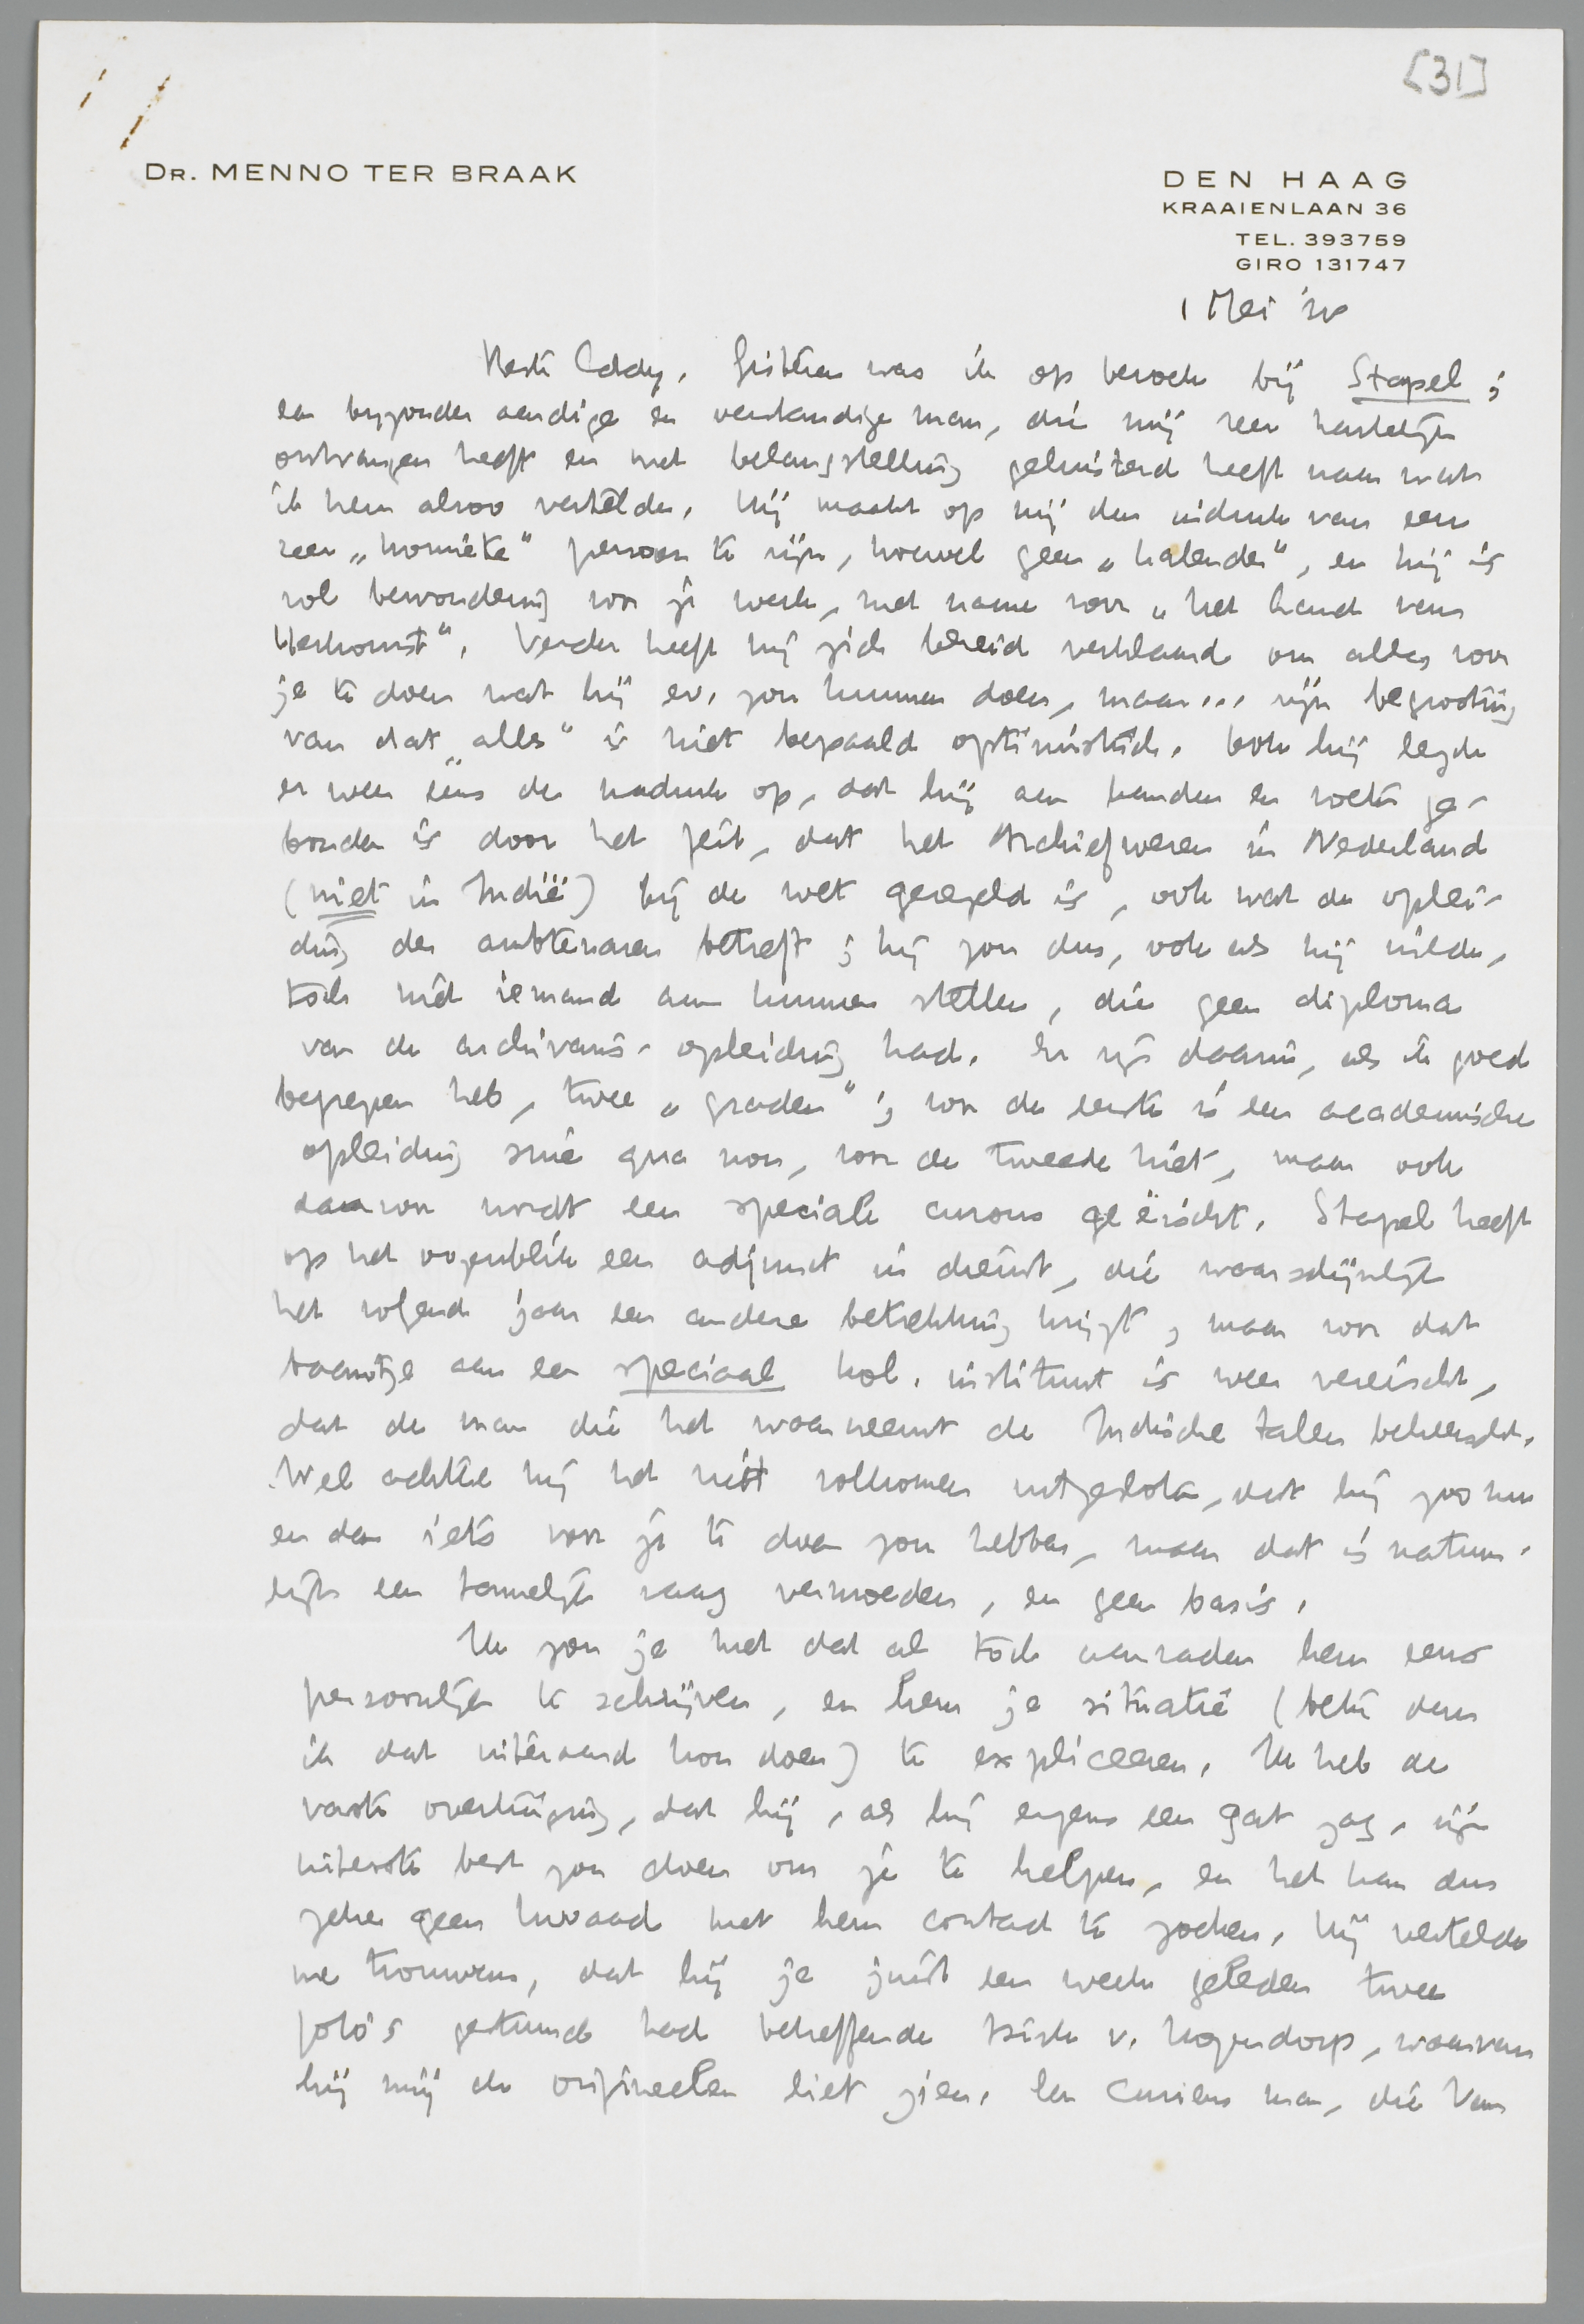 [31]
DR. MENNO TER BRAAK
DEN HAAG
KRAAIENLAAN 36
TEL. 393759
GIRO 131747
1 Mei
Beste Eddy, Gisteren was ik op bezoek bij Stapel;
een byzonder aardige en verstandige man, die mij zeer hartelijk
ontvangen heeft en met belangstelling geluisterd heeft naar wat
ik hem alzoo vertelde. Hij maakt op mij den indruk van een
zeer „honnête" persoon te zijn, hoewel geen „ ", en hij is
vol bewondering voor je werk, met name voor „Het Land van
Herkomst". Verder heeft hij zich bereid verklaard om alles voor
je te doen wat hij ev. zou kunnen doen, maar... zijn begrooting
van dat „alles" is niet bepaald optimistisch. Ook hij legde
er weer eens de nadruk op, dat hij aan handen en voeten ge-
bonden is door het feit, dat het Archiefwezen in Nederland
(niet in Indië) bij de wet geregeld is, ook wat de oplei-
ding der ambtenaren betreft; hij zou dus, ook als hij wilde,
toch niet iemand aan kunnen stellen, die geen diploma
van de archivaris-opleiding had. Er zijn daarin, als ik goed
begrepen heb, twee „graden"; voor de eerste is een academische
opleiding sine qua non, voor de tweede niet, maar ook
daarvoor wordt een speciale cursus geëischt. Stapel heeft
op het oogenblik een adjunct in dienst, die waarschijnlijk
het volgend jaar een andere betrekking krijgt, maar voor dat
baantje aan een speciaal kol. instituut is weer vereischt,
dat de man die het waarneemt de Indische talen beheerscht.
Wel achtte hij het niet volkomen uitgesloten, dat hij zoo nu
en dan iets voor je te doen zou hebben, maar dat is natuur-
lijk een tamelijk vaag vermoeden, en geen basis.
Ik zou je met dat al toch aanraden hem eens
persoonlijk te schrijven, en hem je situatie (beter dan
ik dat uiteraard kon doen) te expliceeren. Ik heb de
vaste overtuiging, dat hij, als hij ergens een gat zag, zijn
uiterste best zou doen om je te helpen, en het kan dus
zeker geen kwaad met hem contact te zoeken. Hij vertelde
me trouwens, dat hij je juist een week geleden twee
foto's gestuurd had betreffende Dirk v. Hogendorp, waarvan
hij mij de origineelen liet zien. Een curieus man, die Van